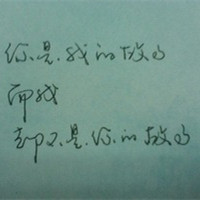 你是我的故乡
而我
却不是你的故乡